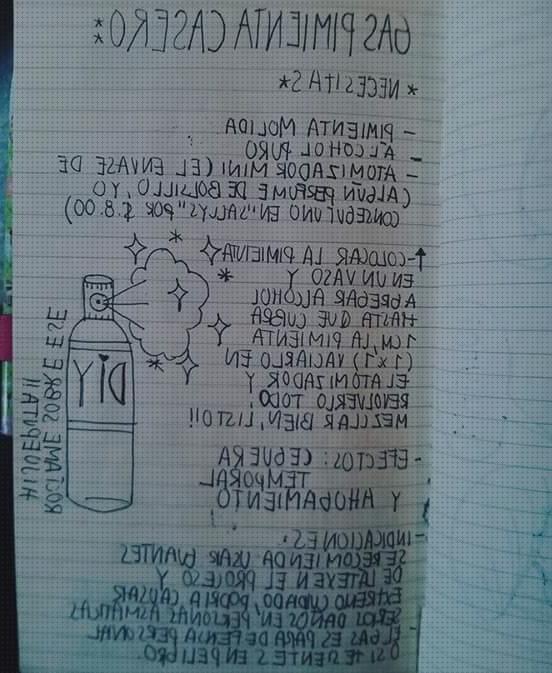 GAS PIMIENTA CASERO:*
* NECESITAS *
- PIMIENTA MOLIDA
- ALCOHOL PURO
- ATOMIZADOR MINI (EL ENVASE DE
(ALGUN PERFUME DE BOLSILLO, YO
CONSEGUÍ UNO EN "SALLYS" POR $.8.00)
-COLOCAR LA PIMIENTA
EN UN VASO Y
AGREGAR ALCOHOL
HASTA QUE CUBRA
1CM, LA PIMIENTA
(1x1) VACIARLO EN
EL ATOMIZADOR Y
REVOLVERLO TODO,
MEZCLAR BIEN, LISTO!!
-EFECTOS: CEGUERA
TEMPORAL
Y AHOGAMIENTO
-INDICACIONES:
SE RECOMIENDA USAR GUANTES
DE LATEX EN EL PROCESO Y
EXTREMO CUIDADO, PODRIA CAUSAR
SERIOS DAÑOS EN PERSONAS ASMATICAS
- EL GAS ES PARA DEFENSA PERSONAL
O SI TE SIENTES EN PELIGRO.
DiY
ROSIAME SOBRE ESE
HIJUEPUTA!!